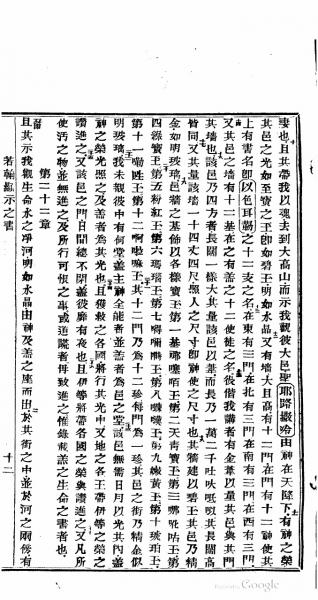 妻也且其帶我以魂去到大高山而示我觀彼大邑聖耶路撒冷由神在天降下有神之榮
其邑之光如至寶之玉即如碧玉明如水晶又有墻大且高有十二門在門有十二神使其
上有書名即以色耳勒之十二支之名在東有三門在北有三門在南有三門在西有三門
又其邑之墻有十二基在之有善之十二使徒之名彼偕我講者有金葦以量其邑與其門
其墻也該邑乃四方者長闊一樣大其量該邑以葦而長乃一萬二千其長闊高
皆同又其量該墻一十丈四尺照人之尺寸即神使之尺寸也其墻建以碧玉其邑乃精
金如明玻璃邑墻之基飾以各樣寶玉第一基玉第二天青寶玉第三玉第
四綠寶玉第五粉紅玉第六瑪瑙玉第七玉第八玉第九綠黃玉第十玉
第十一玉第十二玉其十二門乃爲十二珍每門爲一珍其邑之街乃精金似
明玻璃我未觀彼中有何堂蓋主神全能者並善者爲邑之堂該邑無需日月以光其內蓋
神之榮光照之及善者爲其光也且獲救之各國將行其光中又地之各王帶伊等之榮之
讚進之又該邑之門日間總不閉蓋彼靡有夜也且伊等將帶各國之榮與讚進之又凡所
使污之物並無進之及所行可恨之事或造謊者毋致進之惟錄載善之生命之書者也
第二十二章
且其示我觀生命水之淨河明如水晶由神及善之座而出於其街之中並於河之兩傍有
若翰顯示之書 十二
Google